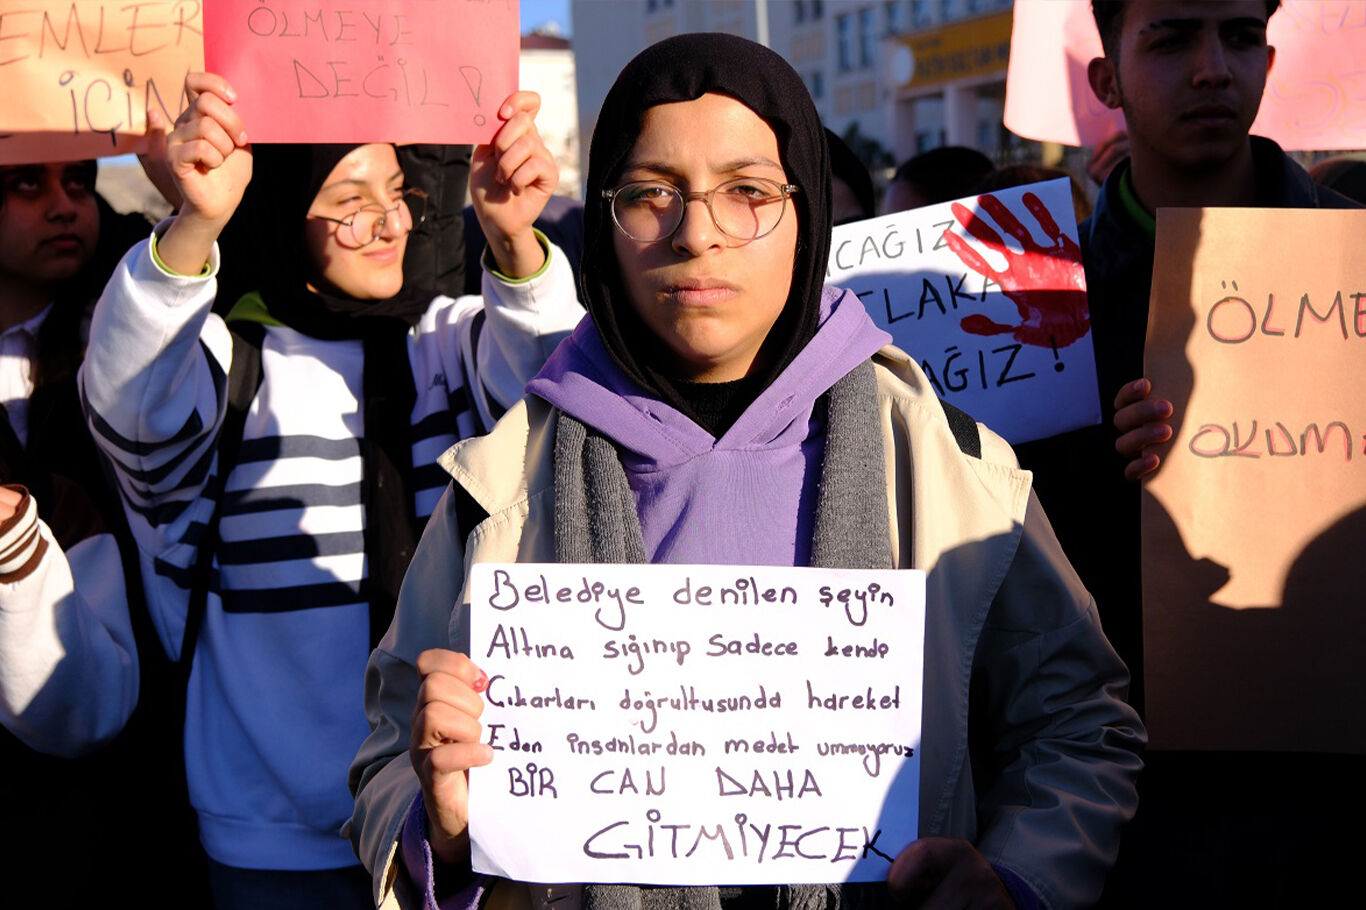 EMLER
İÇİN
ÖLMEYE
DEĞİL!
CAĞIZ
TLAKA
AĞIZ!
ÖLME
OKUM
Belediye denilen şeyin
Altına sığınıp sadece kendi
Çıkarları doğrultusunda hareket
Eden insanlardan medet ummuyoruz
BİR CAN DAHA
GİTMİYECEK